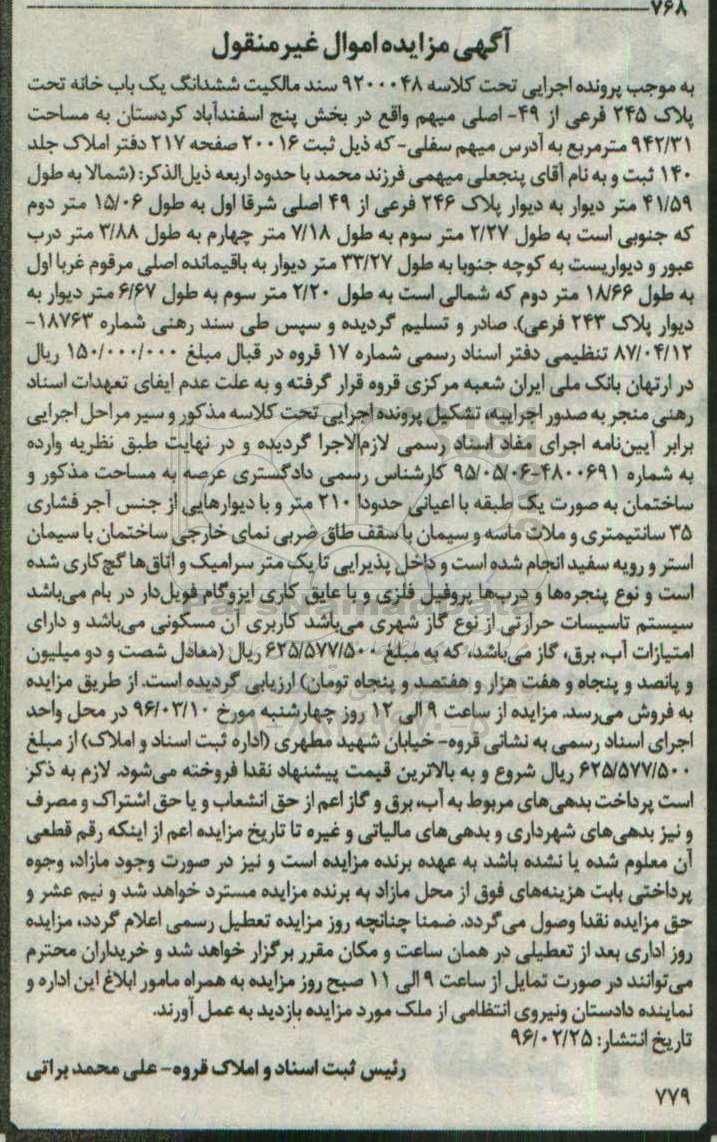 ۷۶۸
آگهی مزایده اموال غیرمنقول
به موجب پرونده اجرایی تحت کلاسه ۹۲۰۰۰۴۸ سند مالکیت ششدانگ یک باب خانه تحت
پلاک ۲۴۵ فرعی از ۴۹- اصلی میهم واقع در بخش پنج اسفندآباد کردستان به مساحت
۹۴۲/۳۱ مترمربع به آدرس میهم سفلی- که ذیل ثبت ۲۰۰۱۶ صفحه ۲۱۷ دفتر املاک جلد
۱۴۰ ثبت و به نام آقای پنجعلی میهمی فرزند محمد با حدود اربعه ذیل‌الذکر: (شمالا به طول
۴۱/۵۹ متر دیوار به دیوار پلاک ۲۴۶ فرعی از ۴۹ اصلی شرقا اول به طول ۱۵/۰۶ متر دوم
که جنوبی است به طول ۲/۲۷ متر سوم به طول ۷/۱۸ متر چهارم به طول ۳/۸۸ متر درب
عبور و دیواریست به کوچه جنوبا به طول ۳۳/۲۷ متر دیوار به باقیمانده اصلی مرقوم غربا اول
به طول ۱۸/۶۶ متر دوم که شمالی است به طول ۲/۲۰ متر سوم به طول ۶/۶۷ متر دیوار به
دیوار پلاک ۲۴۳ فرعی). صادر و تسلیم گردیده و سپس طی سند رهنی شماره ۱۸۷۶۳-
۸۷/۰۴/۱۲ تنظیمی دفتر اسناد رسمی شماره ۱۷ قروه در قبال مبلغ ۱۵۰/۰۰۰/۰۰۰ ریال
در ارتهان بانک ملی ایران شعبه مرکزی قروه قرار گرفته و به علت عدم ایفای تعهدات اسناد
رهنی منجر به صدور اجراییه، تشکیل پرونده اجرایی تحت کلاسه مذکور و سیر مراحل اجرایی
برابر آیین‌نامه اجرای مفاد اسناد رسمی لازم‌الاجرا گردیده و در نهایت طبق نظریه وارده
به شماره ۴۸۰۰۶۹۱-۹۵/۰۵/۰۶ کارشناس رسمی دادگستری عرصه به مساحت مذکور و
ساختمان به صورت یک طبقه با اعیانی حدودا ۲۱۰ متر و با دیوارهایی از جنس آجر فشاری
۳۵ سانتیمتری و ملات ماسه و سیمان با سقف طاق ضربی نمای خارجی ساختمان با سیمان
استر و رویه سفید انجام شده است و داخل پذیرایی تا یک متر سرامیک و اتاق‌ها گچ‌کاری شده
است و نوع پنجره‌ها و درب‌ها پروفیل فلزی و با عایق کاری ایزوگام فویل‌دار در بام می‌باشد
سیستم تاسیسات حرارتی از نوع گاز شهری می‌باشد کاربری آن مسکونی می‌باشد و دارای
امتیازات آب، برق، گاز می‌باشد، که به مبلغ ۶۲۵/۵۷۷/۵۰۰ ریال (معادل شصت و دو میلیون
و پانصد و پنجاه و هفت هزار و هفتصد و پنجاه تومان) ارزیابی گردیده است. از طریق مزایده
به فروش می‌رسد. مزایده از ساعت ۹ الی ۱۲ روز چهارشنبه مورخ ۹۶/۰۳/۱۰ در محل واحد
اجرای اسناد رسمی به نشانی قروه- خیابان شهید مطهری (اداره ثبت اسناد و املاک) از مبلغ
۶۲۵/۵۷۷/۵۰۰ ریال شروع و به بالاترین قیمت پیشنهاد نقدا فروخته می‌شود. لازم به ذکر
است پرداخت بدهی‌های مربوط به آب، برق و گاز اعم از حق انشعاب و یا حق اشتراک و مصرف
و نیز بدهی‌های شهرداری و بدهی‌های مالیاتی و غیره تا تاریخ مزایده اعم از اینکه رقم قطعی
آن معلوم شده یا نشده باشد به عهده برنده مزایده است و نیز در صورت وجود مازاد، وجوه
پرداختی بابت هزینه‌های فوق از محل مازاد به برنده مزایده مسترد خواهد شد و نیم عشر و
حق مزایده نقدا وصول می‌گردد. ضمنا چنانچه روز مزایده تعطیل رسمی اعلام گردد، مزایده
روز اداری بعد از تعطیلی در همان ساعت و مکان مقرر برگزار خواهد شد و خریداران محترم
می‌توانند در صورت تمایل از ساعت ۹ الی ۱۱ صبح روز مزایده به همراه مامور ابلاغ این اداره و
نماینده دادستان ونیروی انتظامی از ملک مورد مزایده بازدید به عمل آورند.
تاریخ انتشار: ۹۶/۰۲/۲۵
رئیس ثبت اسناد و املاک قروه- علی محمد براتی
۷۷۹